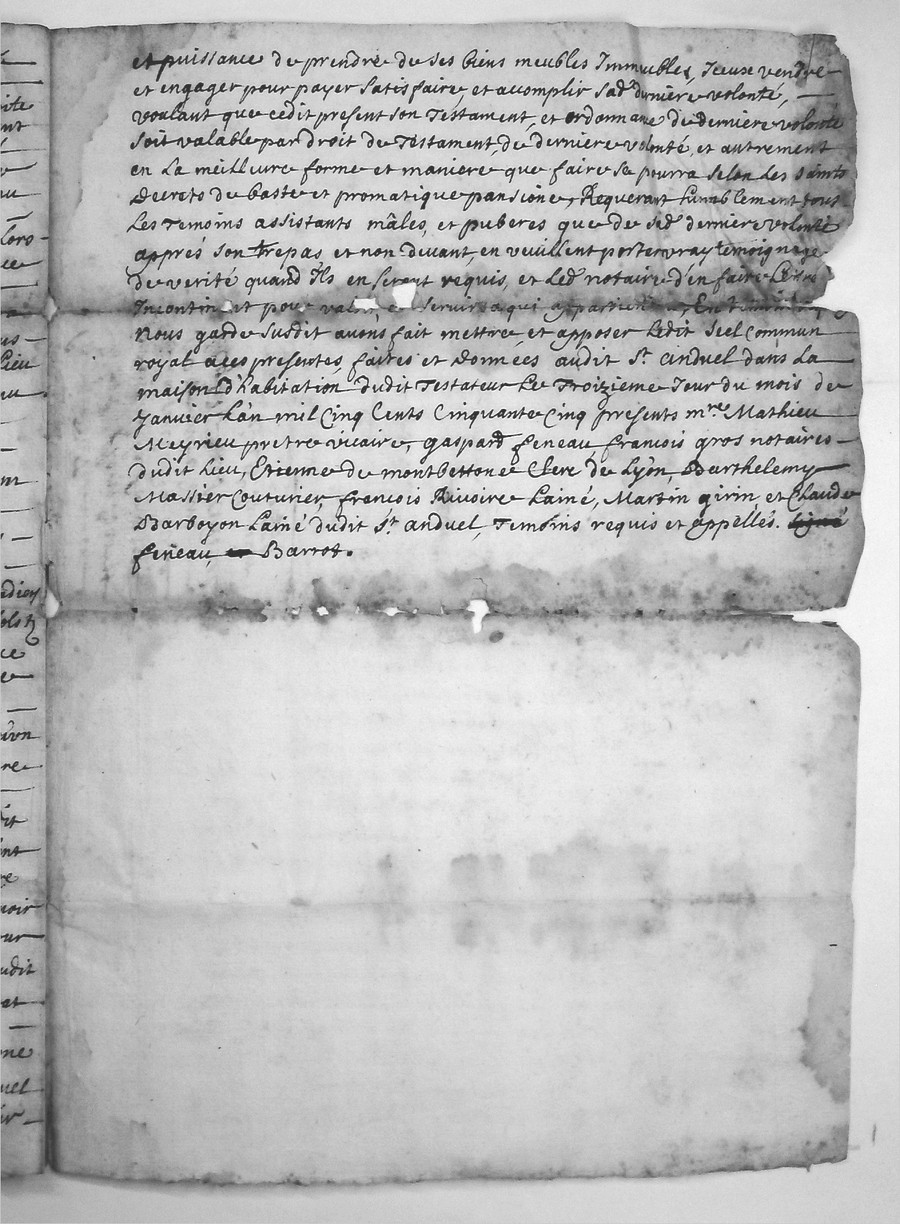 et puissance de prendre de ses biens meubles Immeubles, Iceux vendre
et engager pour payer satisfaire, et accomplir sad.e derniere volonté,
voulant que cedit present son Testament, et ordonnance de derniere volonté
soit valable par droit de Testament, de derniere volonté, et autrement
en La meilleure forme et maniere que faire se pourra selon Les saints
Decrets de baste et promatique pansione, Requerant humblement tout
Les Temoins assistants mâles, et puberes que de sed.e derniere volonté
apprés son trepas, et non devant, en veuillent porter vray temoignage
de verité quand Ils en seront requis, et Led. notaire d'en faire Lettre
Incontinent pour valoir, et servir a qui appartiendra, En
Nous garde susdit avons fait mettre, et apposer Ledit Seel commun
royal a ces presentes, faites et données audit St. anduel dans La
maison d'habitation dudit Testateur Le Troizieme Jour du mois de
Janvier L'an mil Cinq Cents Cinquante Cinq presents m.re Mathieu
Meyrieu pretre vicaire, gaspard feneau, francois gros notaires
dudit Lieu, Etienne de montbettone Clerc de Lyon, Barthelemy
Massier Couturier, francois Rivoire L'ainé, Martin girin et Claude
Barboyon L'ainé dudit St. anduel, Temoins requis et appellés. signé
feneau, Barrot.
ite
nt
u
Loro-
ce
us-
Lieu
nt
edier
ce
e
ivn
re
it
int
re
voir
ur
udit
at
ne
uel
ir